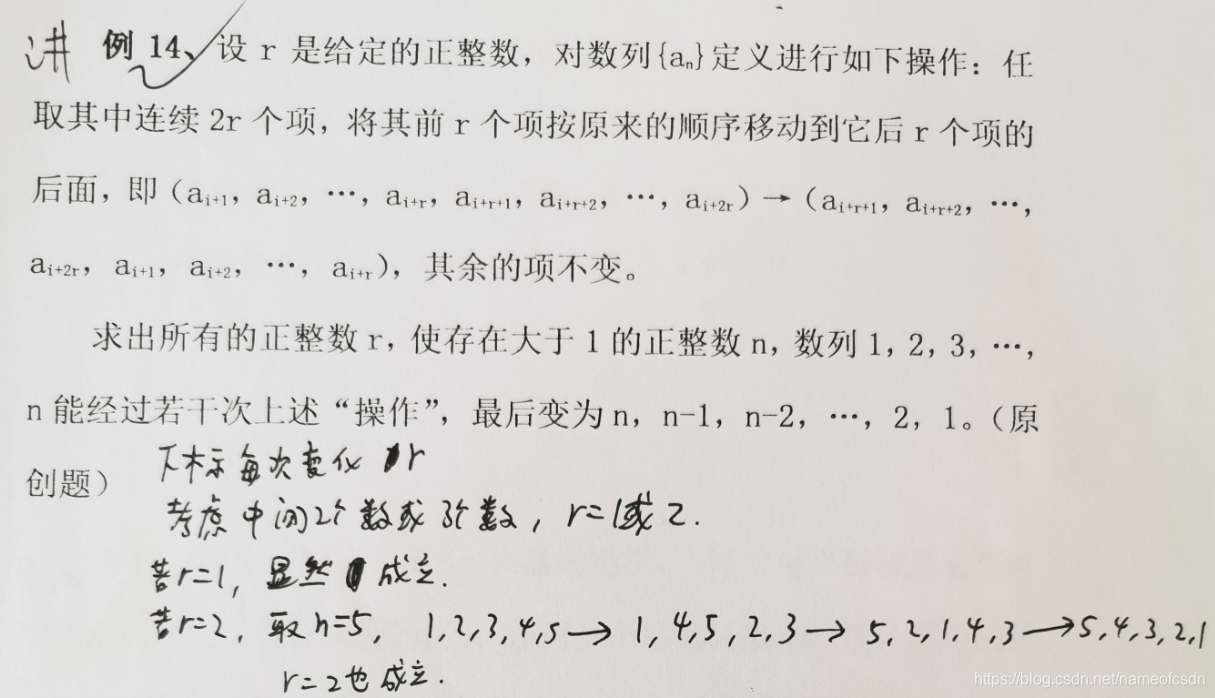 讲 例 14、设 r 是给定的正整数，对数列{aₙ}定义进行如下操作：任
取其中连续 2r 个项，将其前 r 个项按原来的顺序移动到它后 r 个项的
后面，即（aᵢ₊₁，aᵢ₊₂，…，aᵢ₊ᵣ，aᵢ₊ᵣ₊₁，aᵢ₊ᵣ₊₂，…，aᵢ₊₂ᵣ）→（aᵢ₊ᵣ₊₁，aᵢ₊ᵣ₊₂，…，
aᵢ₊₂ᵣ，aᵢ₊₁，aᵢ₊₂，…，aᵢ₊ᵣ），其余的项不变。
求出所有的正整数 r，使存在大于 1 的正整数 n，数列 1，2，3，…，
n 能经过若干次上述“操作”，最后变为 n，n-1，n-2，…，2，1。（原
创题）
下标每次变化 r
考虑中间2个数或3个数，r=1或2.
若r=1，显然成立.
若r=2，取n=5，1,2,3,4,5→1,4,5,2,3→5,2,1,4,3→5,4,3,2,1
r=2也成立.
https://blog.csdn.net/nameofcsdn